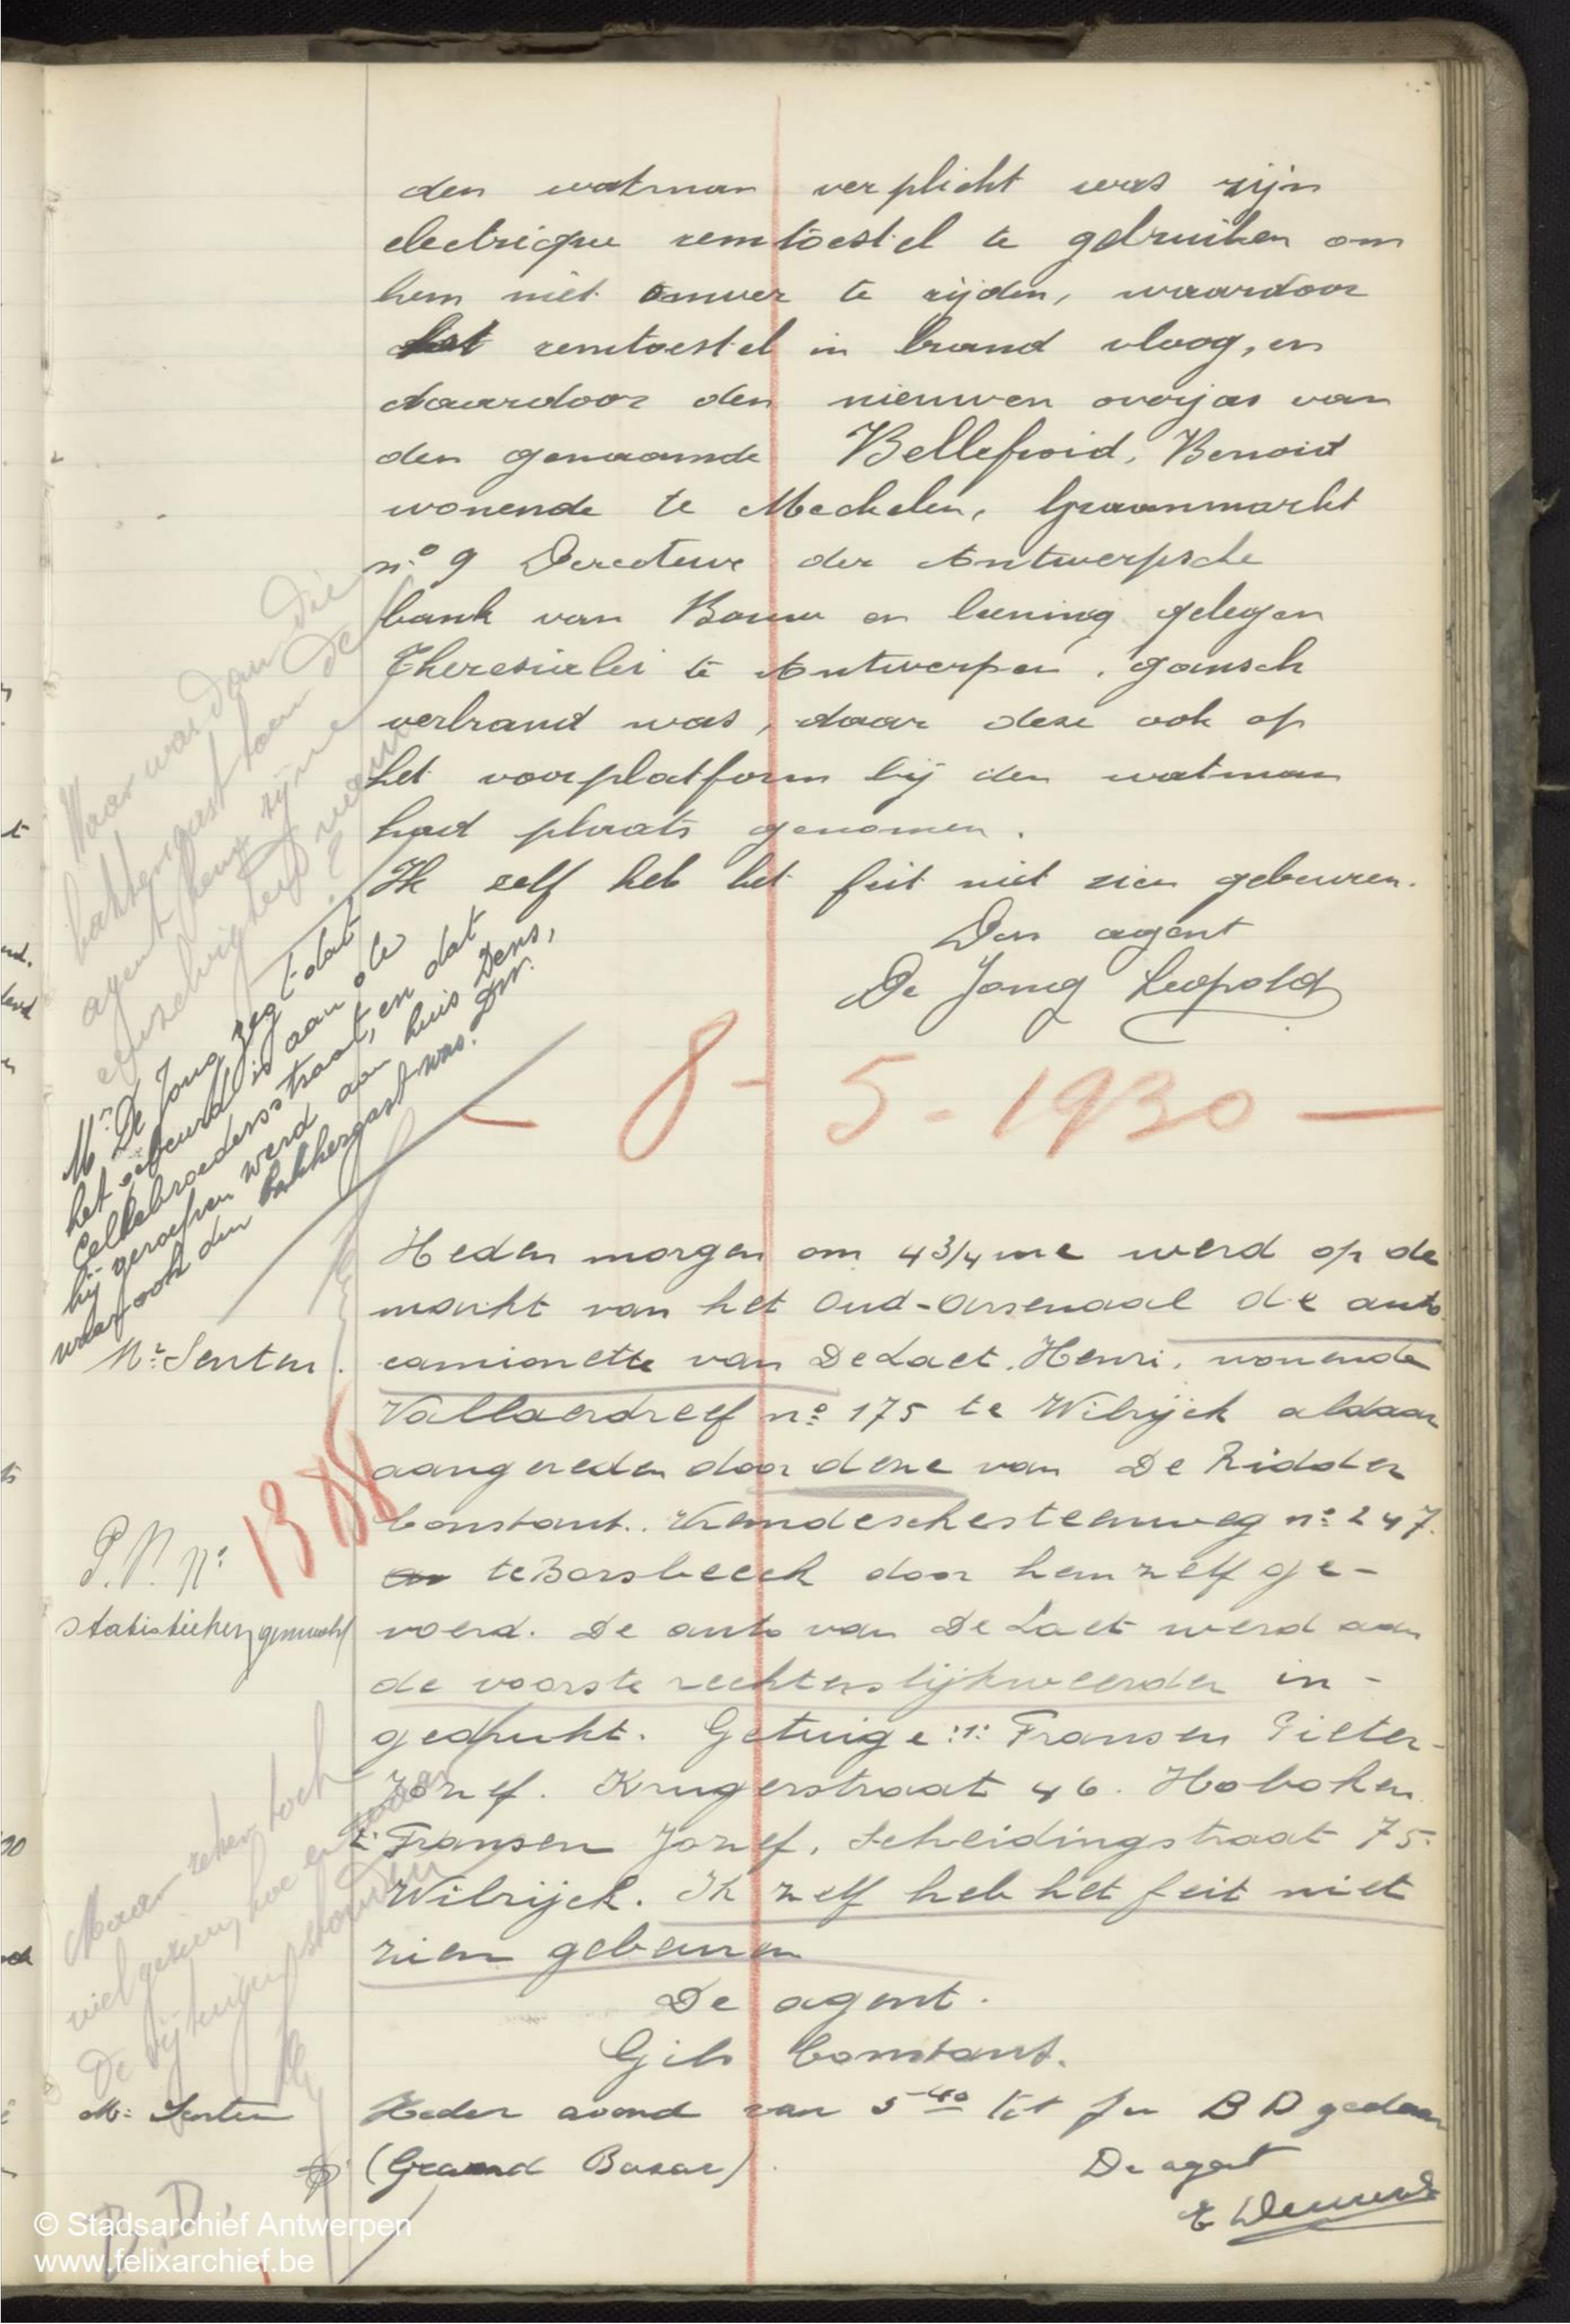 den watman verplicht was zijn
electrique remtoestel te gebruiken om
hem niet omver te rijden, waardoor
het remtoestel in brand vloog, en
daardoor den nieuwen overjas van
den genaamde Bellefroid, Benoit
wonende te Mechelen, Graanmarkt
n:o 9 Directeur der Antwerpsche
bank van Bouw en leening gelegen
Theresialei te Antwerpen. gansch
verbrand was, daar deze ook op
het voorplatform bij den watman
had plaats genomen.
Ik zelf heb het feit niet zien gebeuren.
Den agent
De Jong Leopold
Waar was dan die
bakkersgast toen de
agent hem zijne
Mr. De Jong zegt dat
het gebeurd is aan de
Cellebroedersstraat, en dat
hij geroepen werd aan huis Dens,
waar ook den bakkergast was. Dw.
- 8 - 5 - 1930 -
Heden morgen om 4 3/4 ure werd op de
markt van het Oud-Arsenaal de auto
Mr: Senten. camionette van De Laet. Henri, wonende
Vallaerdreef n:o 175 te Wilrijck aldaar
aangereden door dene van De Ridder
Constant.. n:o 247.
P.V. No: 1388
te Borsbeeck door hem zelf ge-
statistieken gemaakt
voerd. De auto van De Laet werd aan
de voorste rechterslijkweerder in-
gedrukt. Getuige :1: Fransen Pieter-
Jozef. Krugerstraat 46. Hoboken
2: Fransen Jozef, Scheidingstraat 75.
Wilrijck. Ik zelf heb het feit niet
zien gebeuren
De agent.
Gils Constant.
Maar zeker toch
wel gezien, hoe en waar
De rijtuigen stonden
M: Senten Heden avond van 5 40 tot 7u B D gedaan
(Grand Bazar).
De agent
B.D.
© Stadsarchief Antwerpen
www.felixarchief.be